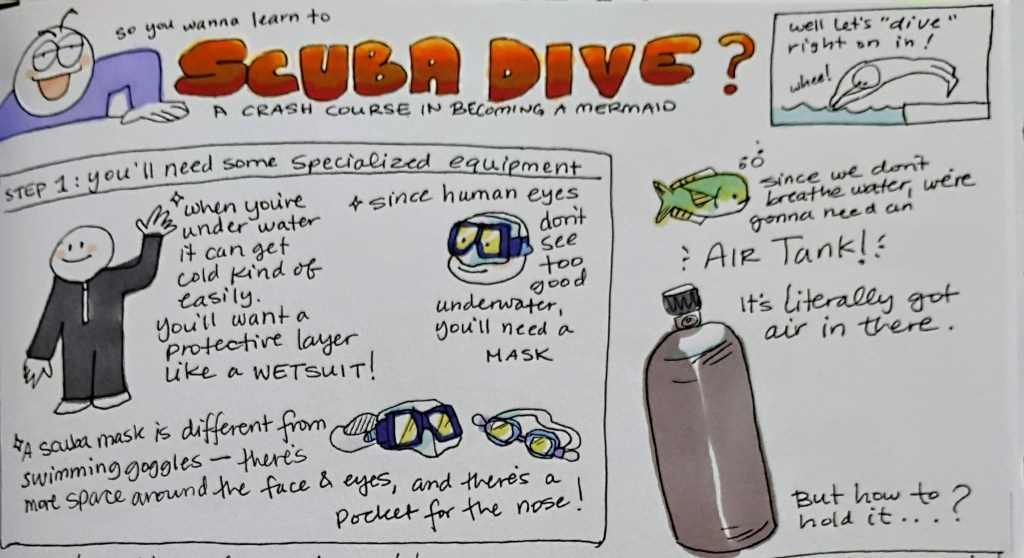 so you wanna learn to
SCUBA DIVE?
A CRASH COURSE IN BECOMING A MERMAID
well let's "dive"
right on in!
whee!
STEP 1: you'll need some specialized equipment
when you're
under water
it can get
cold kind of
easily.
you'll want a
protective layer
like a WETSUIT!
since human eyes
don't
see
too
good
underwater,
you'll need a
MASK
A scuba mask is different from
swimming goggles — there's
more space around the face & eyes, and there's a
pocket for the nose!
since we don't
breathe water, we're
gonna need an
AIR TANK!
It's literally got
air in there.
But how to
hold it....?